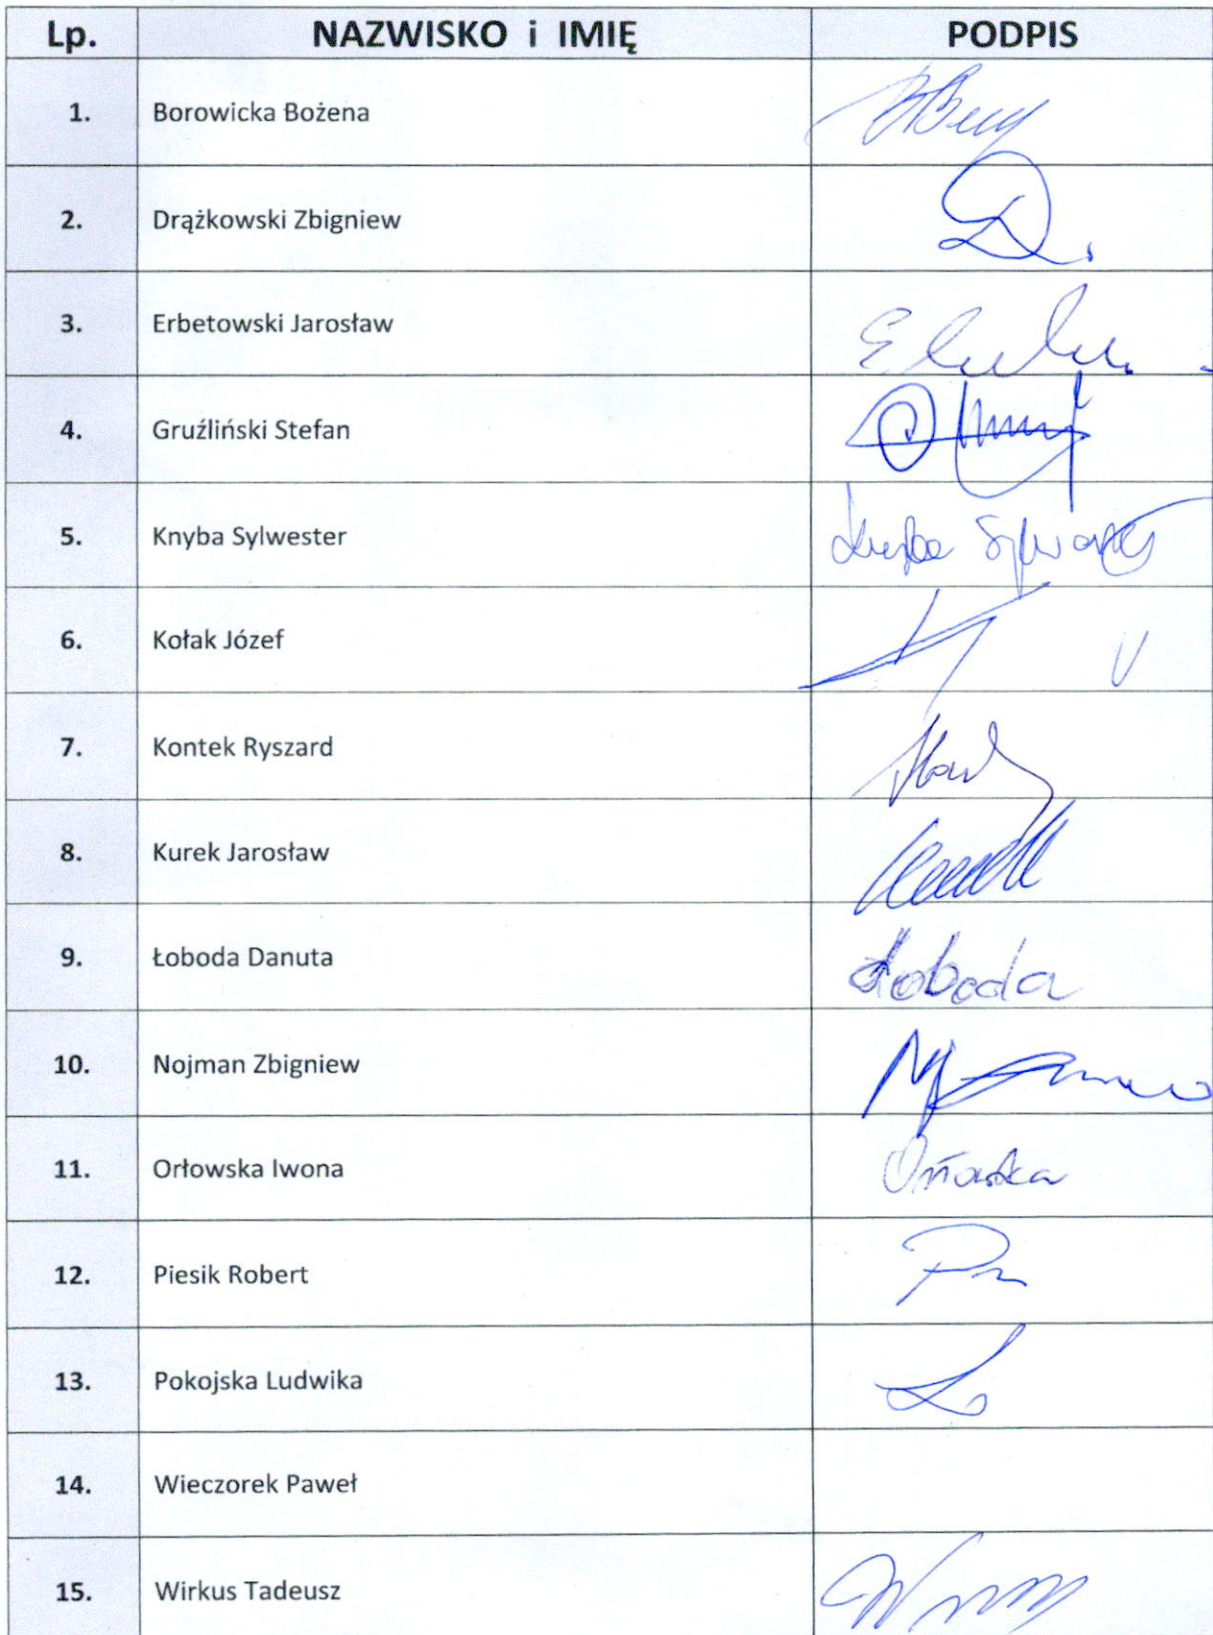 Lp. NAZWISKO i IMIĘ PODPIS
1. Borowicka Bożena
2. Drążkowski Zbigniew
3. Erbetowski Jarosław
4. Gruźliński Stefan
5. Knyba Sylwester
6. Kołak Józef
7. Kontek Ryszard
8. Kurek Jarosław
9. Łoboda Danuta Łoboda
10. Nojman Zbigniew
11. Orłowska Iwona
12. Piesik Robert
13. Pokojska Ludwika
14. Wieczorek Paweł
15. Wirkus Tadeusz